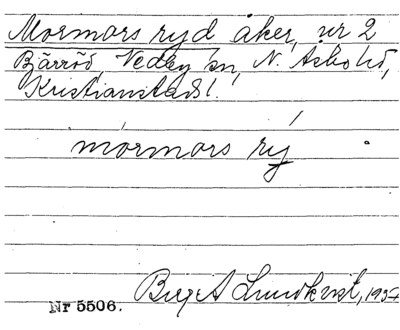 Mormors ryd åker, nr 2
Bjärröd, Vedby sn, N. Åsbo hd,
Kristianstads l.
mórmors rý
Birg A Lundkvist, 1934
Nr 5506.